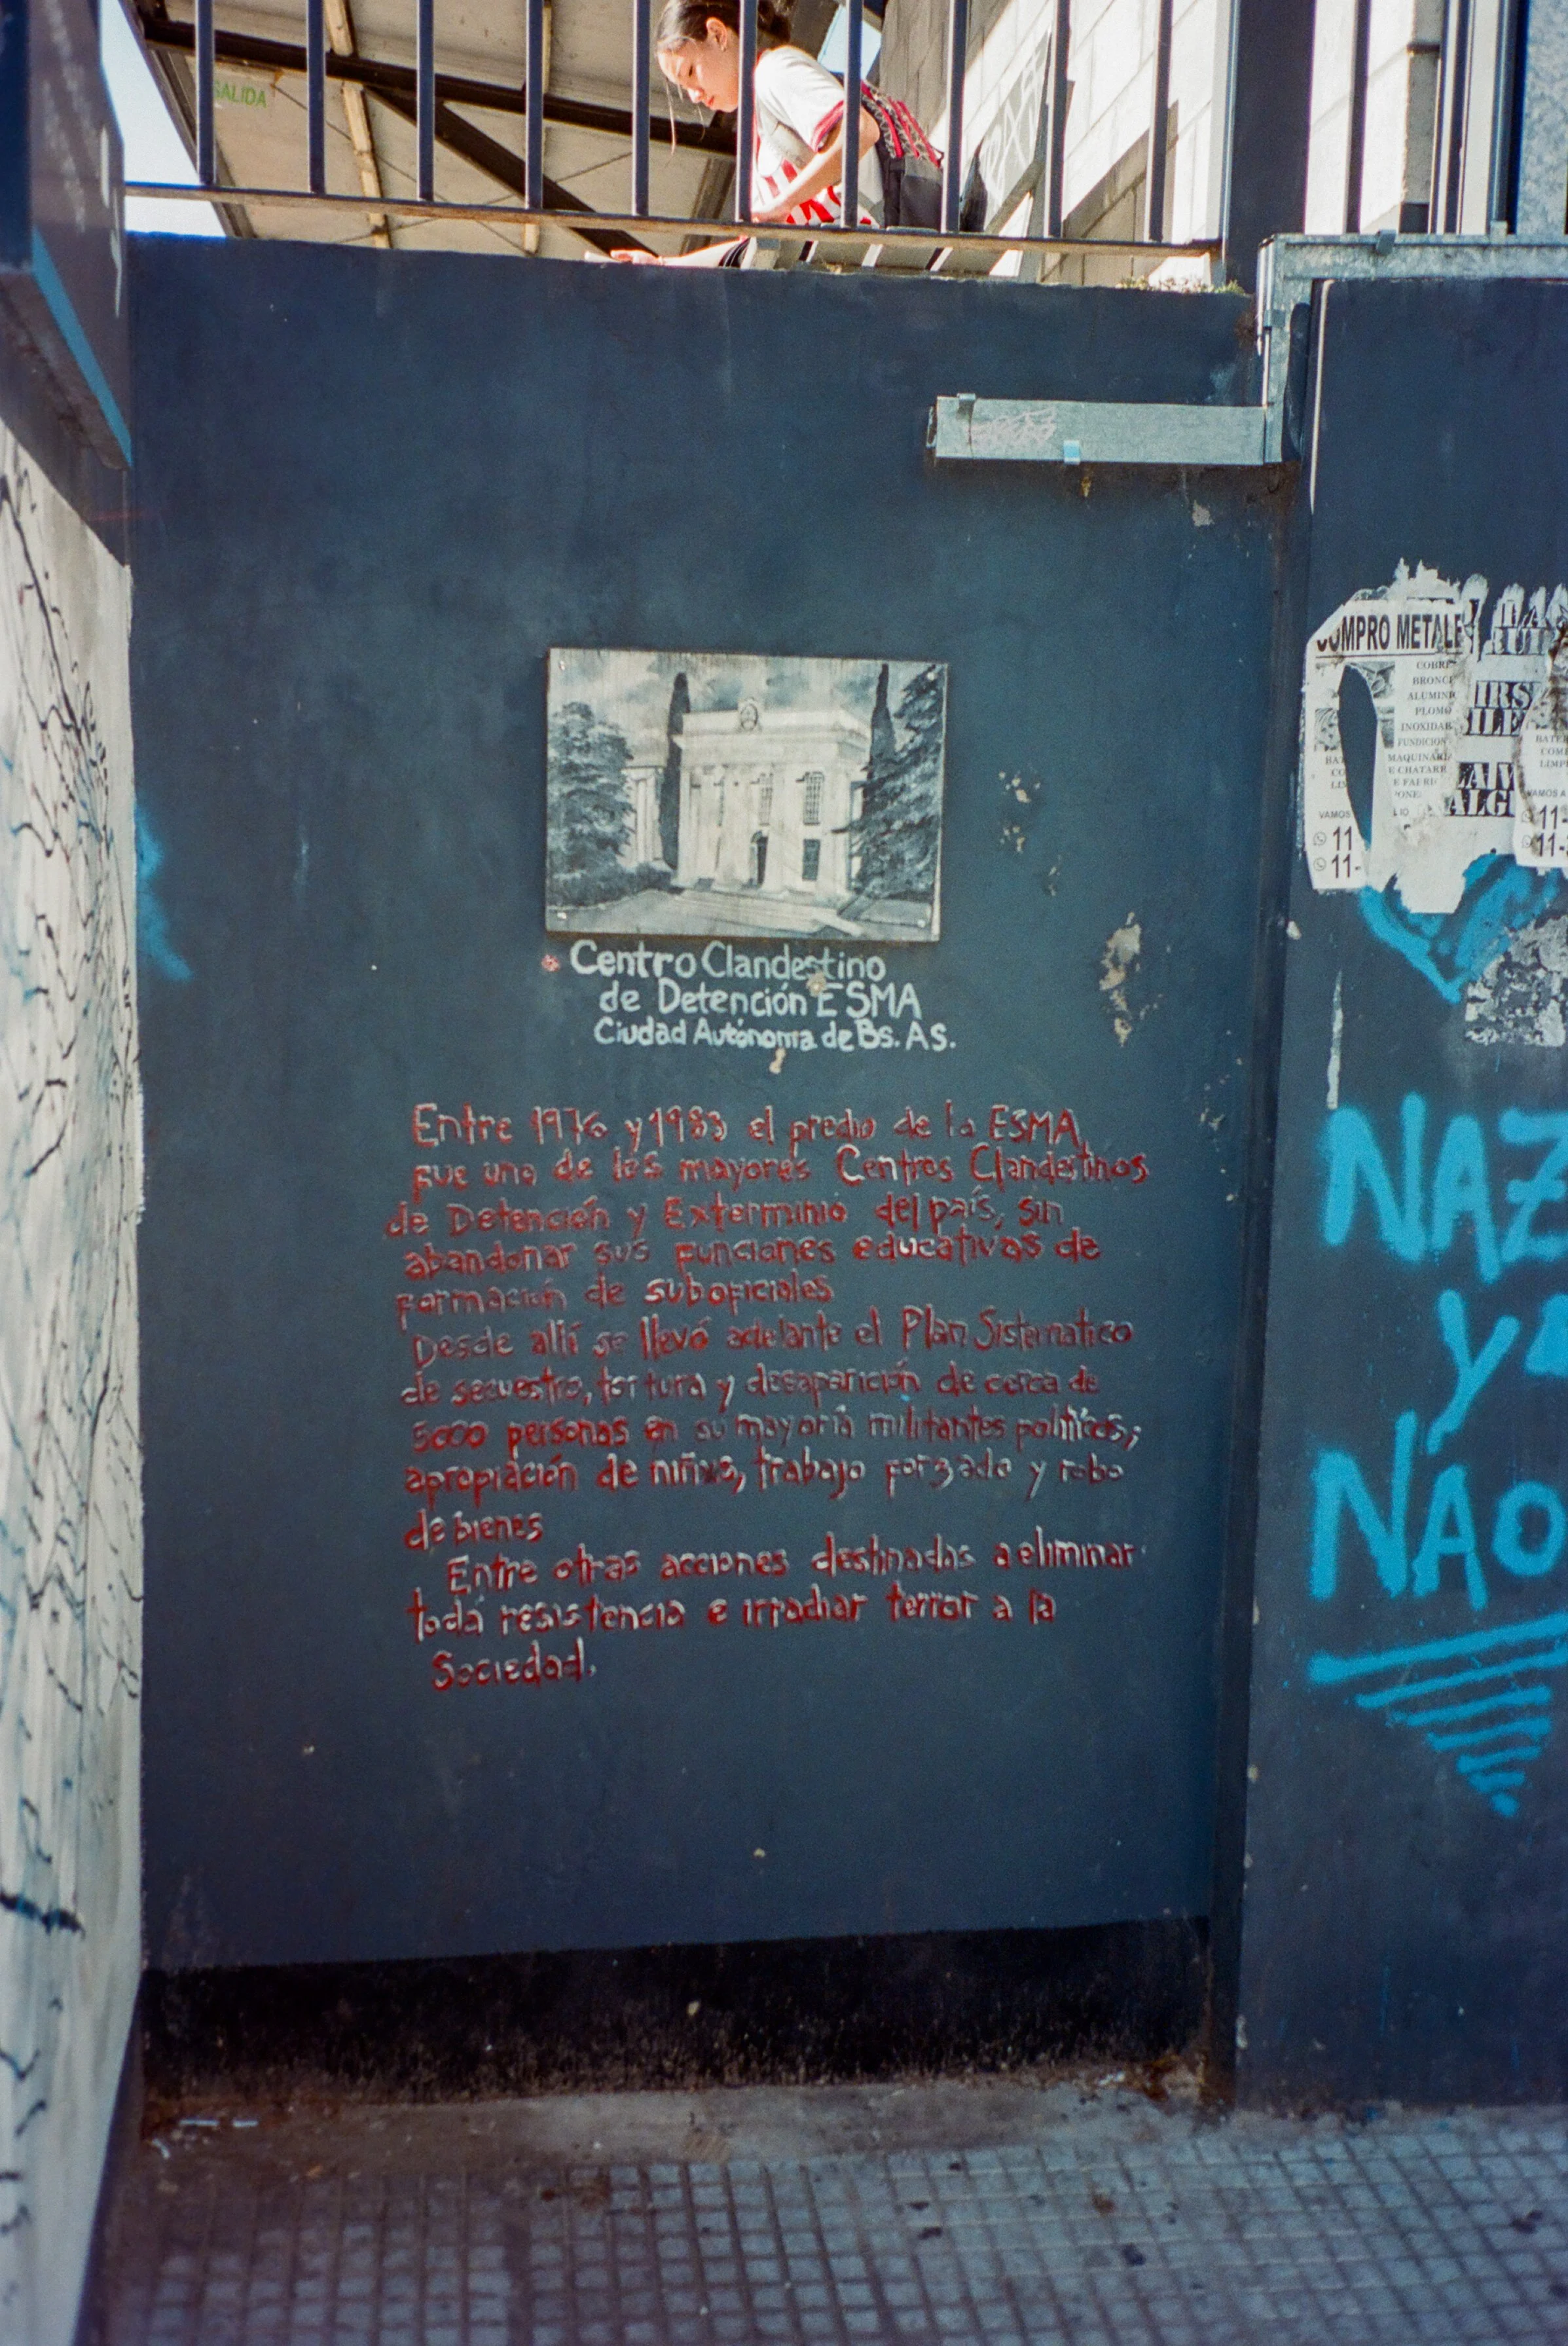 SALIDA
Centro Clandestino
de Detención ESMA
Ciudad Autónoma de Bs. As.
Entre 1976 y 1983 el predio de la ESMA
fue uno de los mayores Centros Clandestinos
de Detención y Exterminio del país, sin
abandonar sus funciones educativas de
formación de suboficiales
Desde allí se llevó adelante el Plan Sistematico
de secuestro, tortura y desaparición de cerca de
5000 personas en su mayoría militantes políticos;
apropiación de niñxs, trabajo forzado y robo
de bienes
Entre otras acciones destinadas a eliminar
toda resistencia e irradiar terror a la
Sociedad.
COMPRO METALE
COBRE
BRONCE
ALUMINI
PLOMO
INOXIDAB
FUNDICION
MAQUINARIA
CHATARR
VAMOS
11
11-
VAMOS A
11-
11-
NAZ
y
NAO